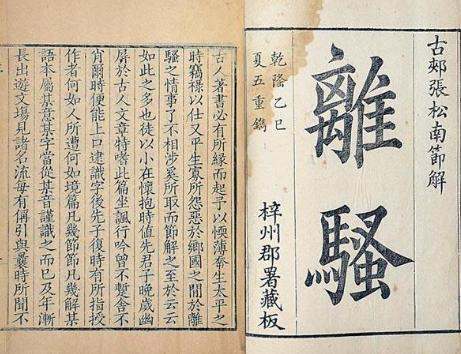 古郟張松南節解
離騷
乾隆乙巳
夏五重鐫
梓州郡署藏板
古人著書必有所緣而起予以薄生太平之
時羈祿以仕又平生寡所怨惡於鄉國之間於離
騷之情事了不相涉奚所取而節解之至於云云
如此之多也徒以小在懷抱時值先君子晚歲幽
屏於古人文章特嗜此篇坐諷行吟曾不暫舍不
肖爾時便能上口逮識字後先子復時有所指授
作者何如人所遭何如境篇凡幾節節凡幾解某
語本屬某意某字當從某音謹識之而已及年漸
長出遊文場見諸名流每有稱引與曩時所聞不